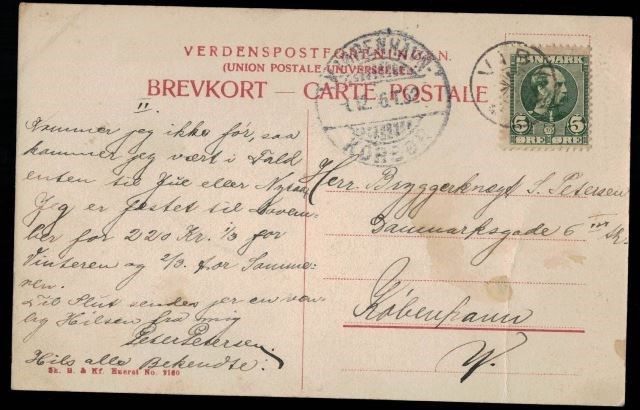 VERDENSPOSTFORENINGEN.
(UNION POSTALE UNIVERSELLE)
BREVKORT — CARTE POSTALE
DANMARK
5 5
ØRE ØRE
KØBENHAVN
II.
Kommer jeg ikke før, saa
kommer jeg vært i Fald
enten til Jul eller Nytaar
Jeg er fæstet til Novem-
ber for 220 Kr. 1/3 for
Vinteren og 2/3 for Somme-
ren.
Til Slut sendes jer en ven-
lig Hilsen fra mig
Peter Petersen.
Hils alle Bekendte.
Herr. Bryggerknægt S. Petersen
Danmarksgade 6
København
V.
Sk. B. & Kf. Eneret No. 2160